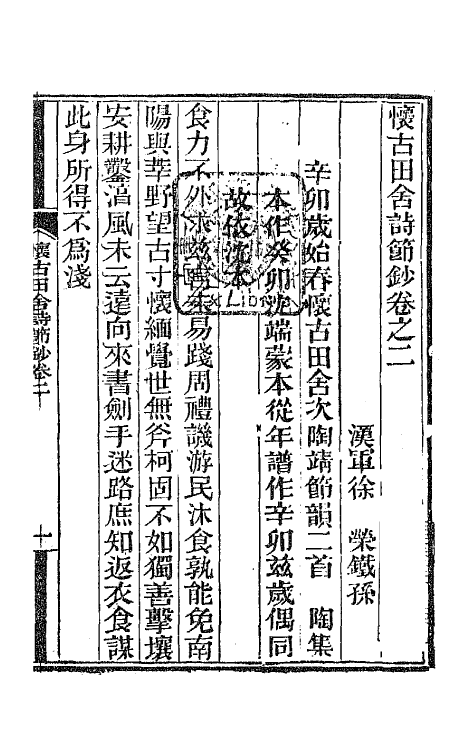 懷古田舍詩節鈔卷之二
漢軍徐　榮鐵孫
辛卯歲始春懷古田舍次陶靖節韻二首　陶集
本作癸卯沈端蒙本從年譜作辛卯茲歲偶同
故依沈本
食力不外求茲未易踐周禮譏游民沐食孰能免南
陽與莘野望古寸懷緬覺世無斧柯固不如獨善擊壤
安耕鑿湻風未云遠向來書劍手迷路庶知返衣食謀
此身所得不爲淺
懷古田舍詩節鈔卷二